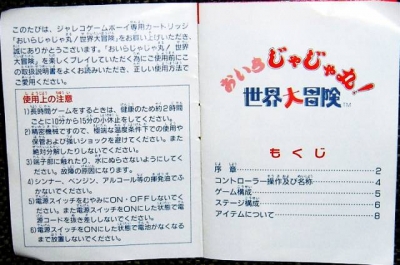 このたびは、ジャレコゲームボーイ専用カートリッジ
「おいらじゃじゃ丸!世界大冒険」をお買い上げいただき、
誠にありがとうございます。「おいらじゃじゃ丸!世界
大冒険」を楽しくプレイしていただく為にご使用前にこ
の取扱説明書をよくお読みいただき、正しい使用方法で
ご愛用ください。
使用上の注意
1)長時間ゲームをするときは、健康のため約2時間
ごとに10分から15分の小休止をしてください。
2)精密機械ですので、極端な温度条件下での使用や
保管および強いショックを避けてください。また
絶対分解したりしないでください。
3)端子部に触れたり、水にぬらさないようにしてく
ださい。故障の原因になります。
4)シンナー、ベンジン、アルコール等の揮発油でふ
かないでください。
5)電源スイッチをむやみにON・OFFしないでくだ
さい。また電源スイッチをONにした状態で電
源コードを抜き差ししないでください。
6)電源スイッチをONにした状態で電池がなくなる
まで放置しないでください。
おいらじゃじゃ丸!
世界大冒険
TM
もくじ
序章 2
コントローラー操作及び名称 4
ゲーム構成 5
ステージ構成 6
アイテムについて 8